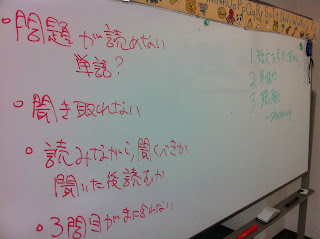 ・問題が読めない
単語?
・聞き取れない
・読みながら聞くべきか
聞いた後読むか
・3問目がまに合わない
1.
2.
3.
→ shadowing